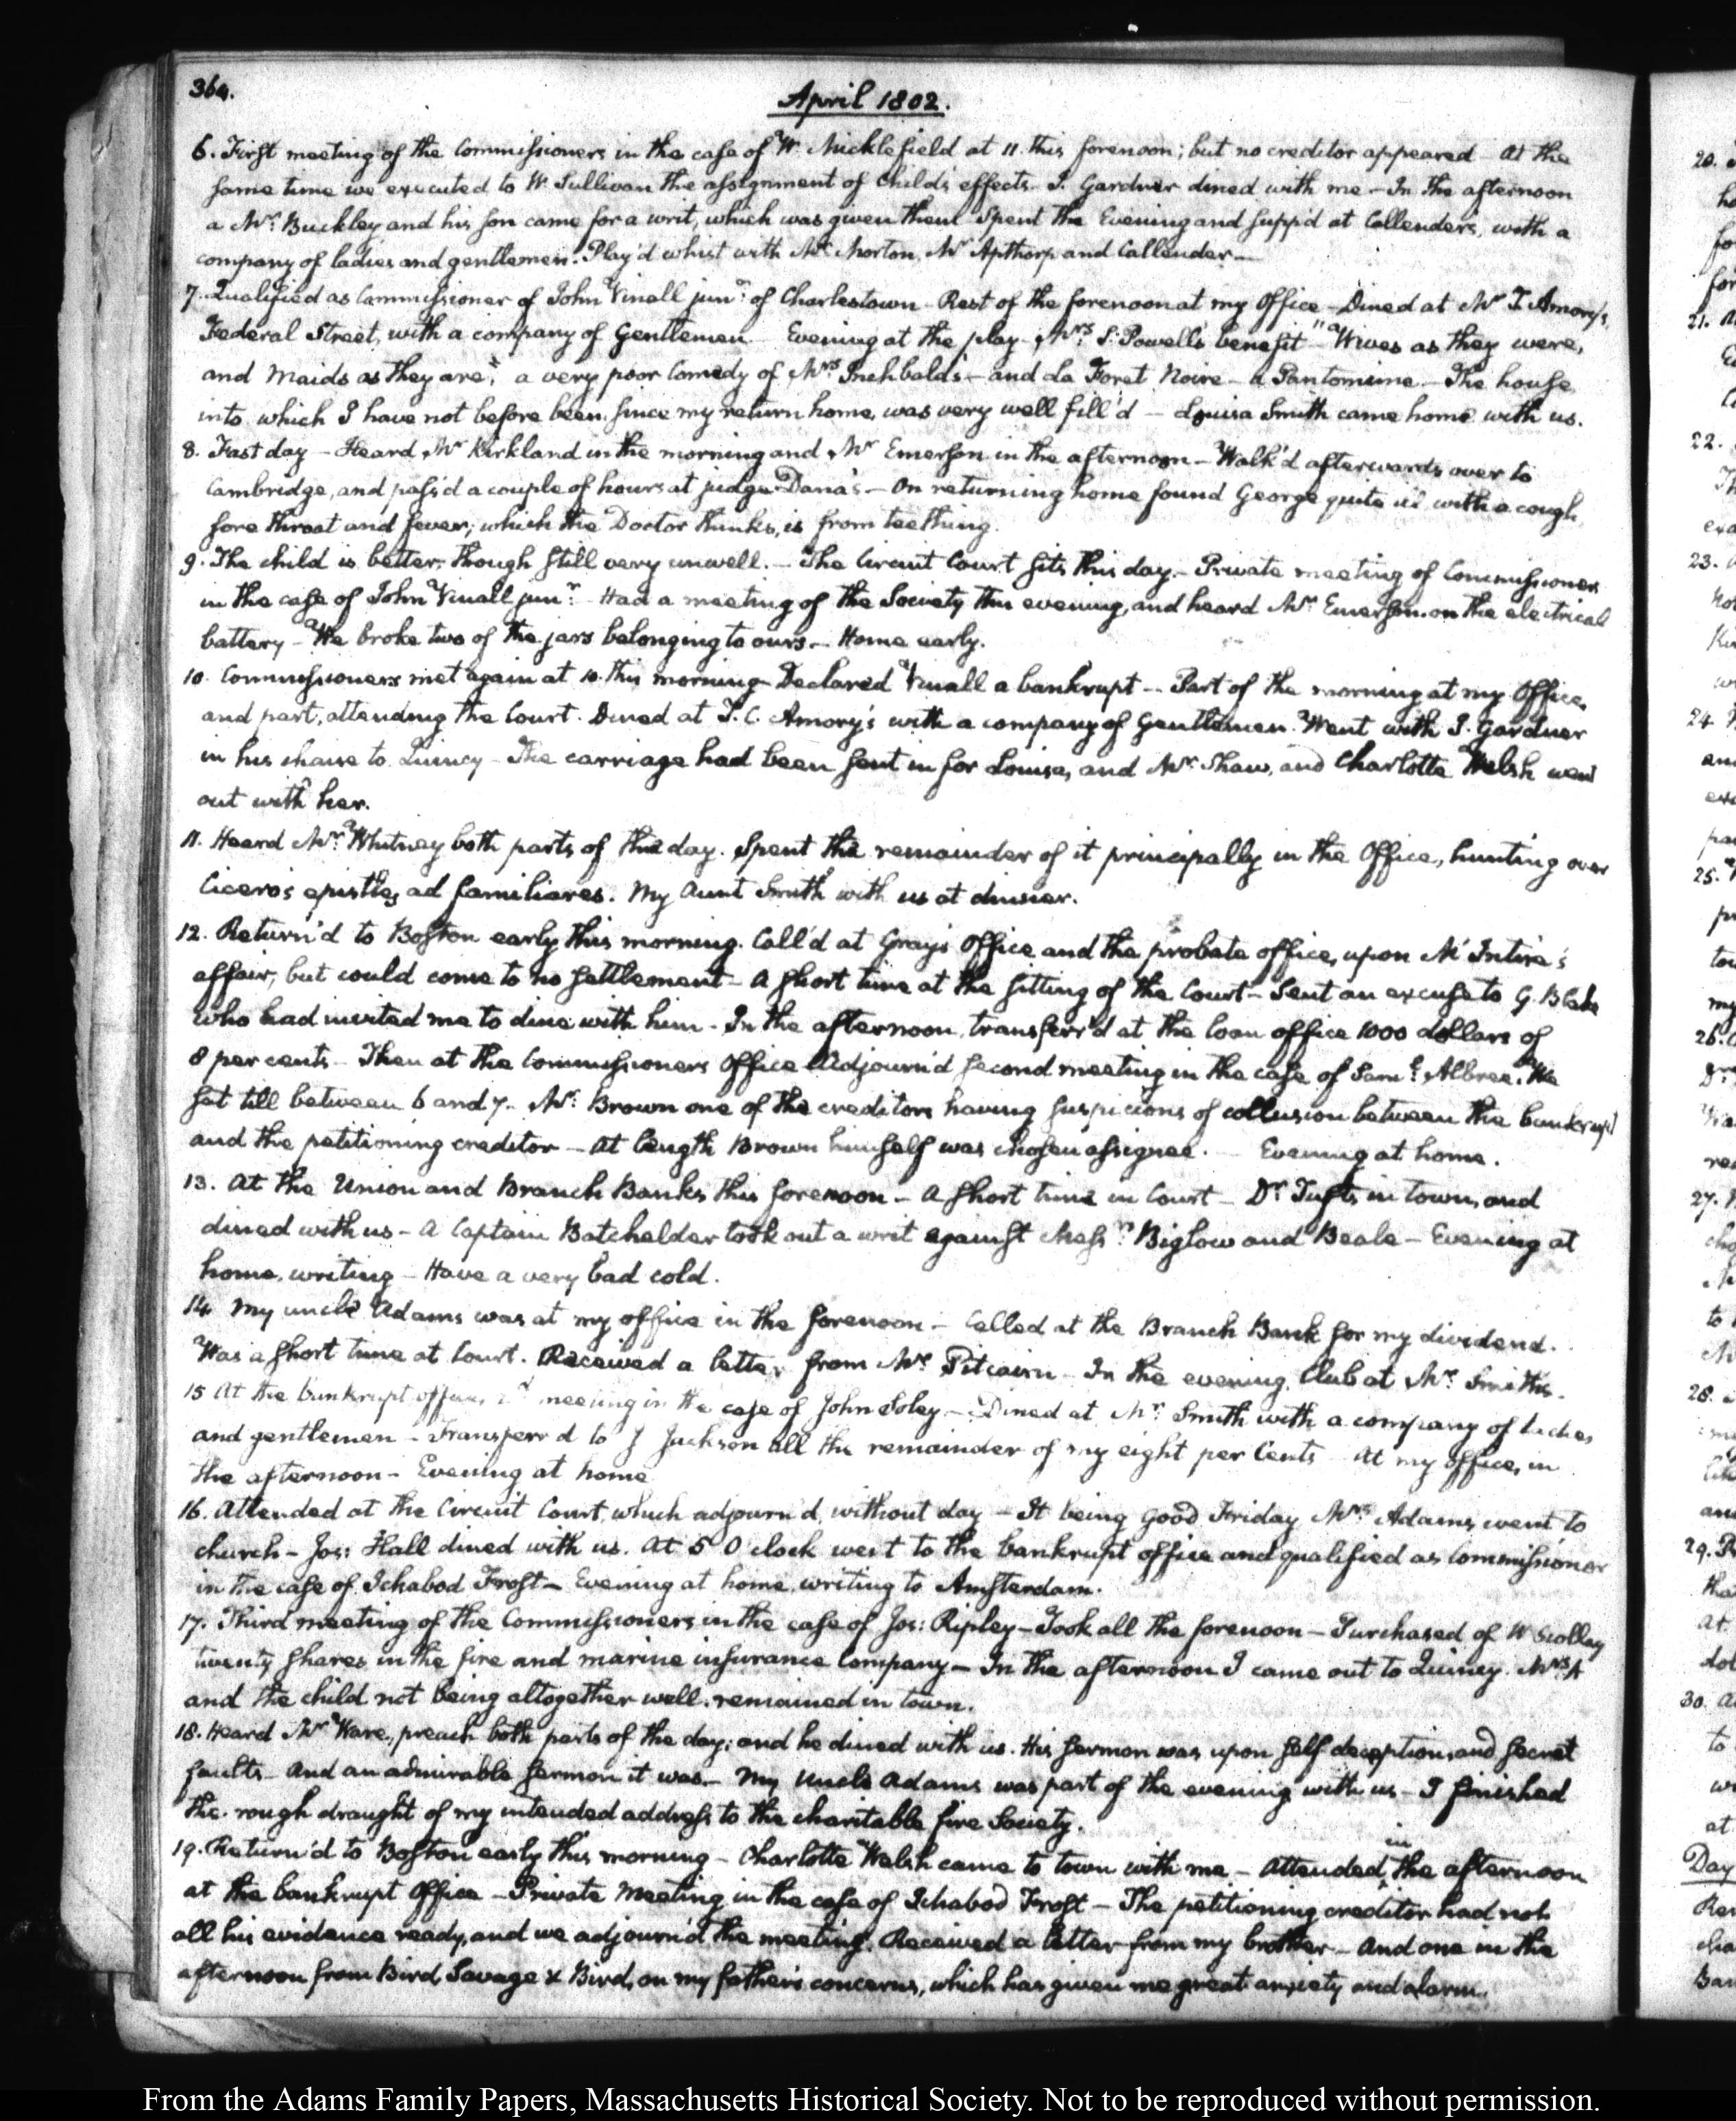 364.
April 1802.
6. First meeting of the Commissioners in the case of W. Micklefield at 11 this forenoon; but no creditor appeared — At the
same time we executed to W. Sullivan the assignment of Child's effects. J. Gardner dined with me — In the afternoon
a Mr. Buckley and his son came for a writ, which was given them. Spent the Evening and supp'd at Callender's, with a
company of ladies and gentlemen. Play'd whist with Mr. Morton, Mr. Apthorp and Callender —
7. Qualified as Commissioner of John Vinall junr. of Charlestown — Rest of the forenoon at my Office — Dined at Mr. T. Amory's,
Federal Street, with a company of Gentlemen — Evening at the play — Mrs. S. Powell's benefit — "Wives as they were,
and Maids as they are", a very poor Comedy of Mrs. Inchbald's — and La Foret Noire — a Pantomime — The house
into which I have not before been, since my return home, was very well fill'd — Louisa Smith came home with us.
8. Fast day — Heard Mr. Kirkland in the morning and Mr. Emerson in the afternoon — Walk'd afterwards over to
Cambridge, and pass'd a couple of hours at judge Dana's — On returning home found George quite ill with a cough
sore throat and fever; which the Doctor thinks, is from teething.
9. The child is better, though still very unwell. — The Circuit Court sits this day. — Private meeting of Commissioners
in the case of John Vinall junr. — Had a meeting of the Society this evening, and heard Mr. Emerson on the electrical
battery — We broke two of the jars belonging to ours. — Home early.
10. Commissioners met again at 10 this morning — Declared Vinall a bankrupt — Part of the morning at my Office
and part, attending the Court. Dined at T. C. Amory's with a company of Gentlemen. Went with J. Gardner
in his chaise to Quincy — The carriage had been sent in for Louisa, and Mr. Shaw, and Charlotte Welsh went
out with her.
11. Heard Mr. Whitney both parts of the day. Spent the remainder of it principally in the Office, hunting over
Cicero's epistles ad familiares. My Aunt Smith with us at dinner.
12. Return'd to Boston early this morning. Call'd at Gray's Office and the probate office, upon McIntire's
affair, but could come to no settlement — A short time at the sitting of the Court — Sent an excuse to G. Blake
who had invited me to dine with him — In the afternoon, transferr'd at the loan office 1000 dollars of
8 per cents — Then at the Commissioners Office Adjourn'd second meeting in the case of Saml. Albree. We
sat till between 6 and 7. Mr. Brown one of the creditors having suspicions of collusion between the bankrupt
and the petitioning creditor — At length Brown himself was chosen assignee. — Evening at home.
13. At the Union and Branch Banks this forenoon — A short time in Court — Dr. Tufts in town, and
dined with us — A Captain Batchelder took out a writ against Messrs. Biglow and Beale — Evening at
home, writing — Have a very bad cold.
14. My uncle Adams was at my office in the forenoon — Called at the Branch Bank for my dividend.
Was a short time at Court. Received a letter from Mr. Pitcairn — In the evening, Club at Mr. Smith's.
15 At the bankrupt office, 2d. meeting in the case of John Soley — Dined at Mr. Smith with a company of ladies
and gentlemen — Transferr'd to J Jackson all the remainder of my eight per Cents — At my Office, in
the afternoon — Evening at home
16. Attended at the Circuit Court, which adjourn'd, without day — It being Good Friday Mrs. Adams, went to
church — Jos: Hall dined with us. At 5 O clock went to the bankrupt office and qualified as Commissioner
in the case of Ichabod Frost — Evening at home, writing to Amsterdam.
17. Third meeting of the Commissioners in the case of Jos: Ripley — Took all the forenoon — Purchased of W Scollay
twenty shares in the fire and marine insurance Company — In the afternoon I came out to Quincy. Mrs. A
and the child not being altogether well, remained in town.
18. Heard Mr. Ware, preach both parts of the day; and he dined with us. His sermon was upon self deception, and secret
faults — And an admirable sermon it was — My Uncle Adams was part of the evening with us — I finished
the rough draught of my intended address to the charitable fire Society.
19. Return'd to Boston early this morning — Charlotte Welsh came to town with me — Attended in the afternoon
at the bankrupt Office — Private Meeting in the case of Ichabod Frost — The petitioning creditor had not
all his evidence ready, and we adjourn'd the meeting. Received a letter from my brother — And one in the
afternoon from Bird, Savage & Bird, on my father's concerns, which has given me great anxiety and alarm.
From the Adams Family Papers, Massachusetts Historical Society. Not to be reproduced without permission.